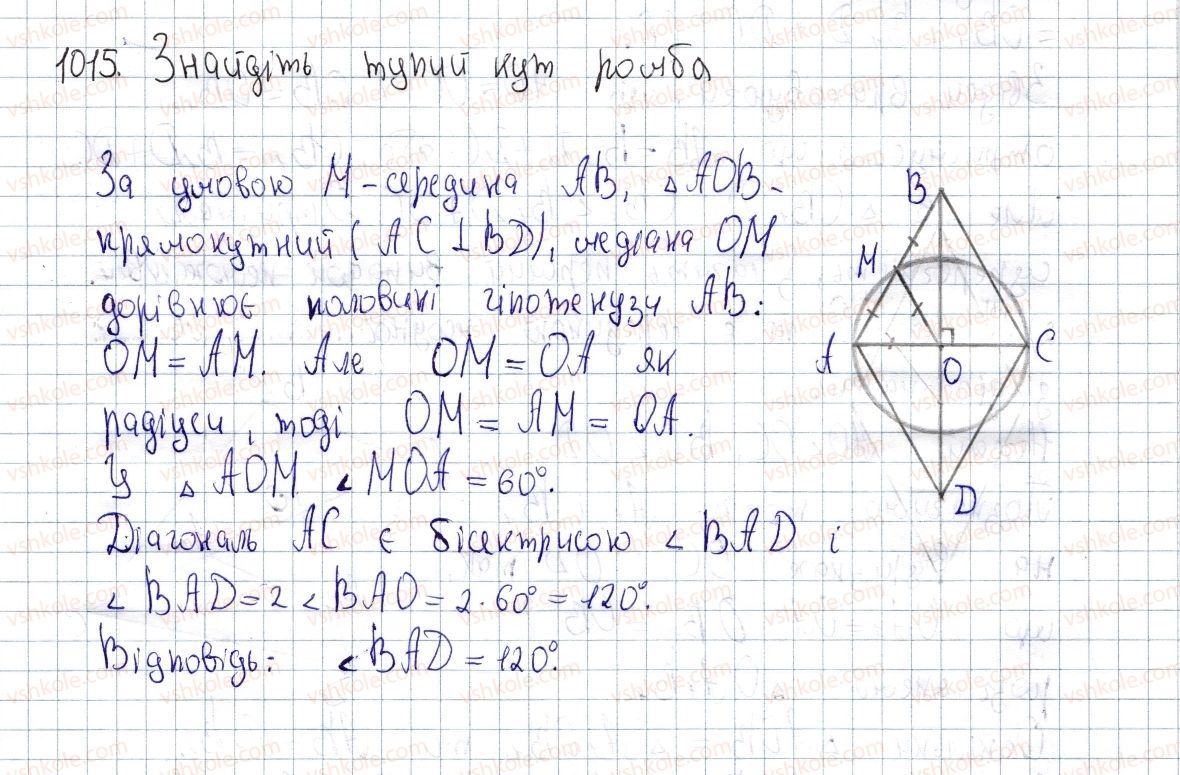 1015. Знайдіть тупий кут ромба
За умовою М - середина АВ, △ АОВ -
прямокутний (АС ⊥ BD), медіана ОМ
дорівнює половині гіпотенузи АВ:
ОМ = АМ. Але ОМ = ОА як
радіуси, тоді ОМ = АМ = ОА.
У △ АОМ ∠ МОА = 60°.
Діагональ АС є бісектрисою ∠ BAD і
∠ BAD = 2 ∠ BAO = 2 · 60° = 120°.
Відповідь: ∠ BAD = 120°.
B
M
A
C
O
D
vshkole.com